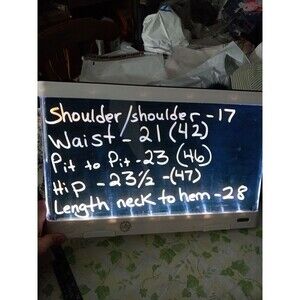 Shoulder/shoulder - 17
Waist - 21 (42)
Pit to Pit - 23 (46)
HiP - 23 1/2 - (47)
Length neck to hem - 28